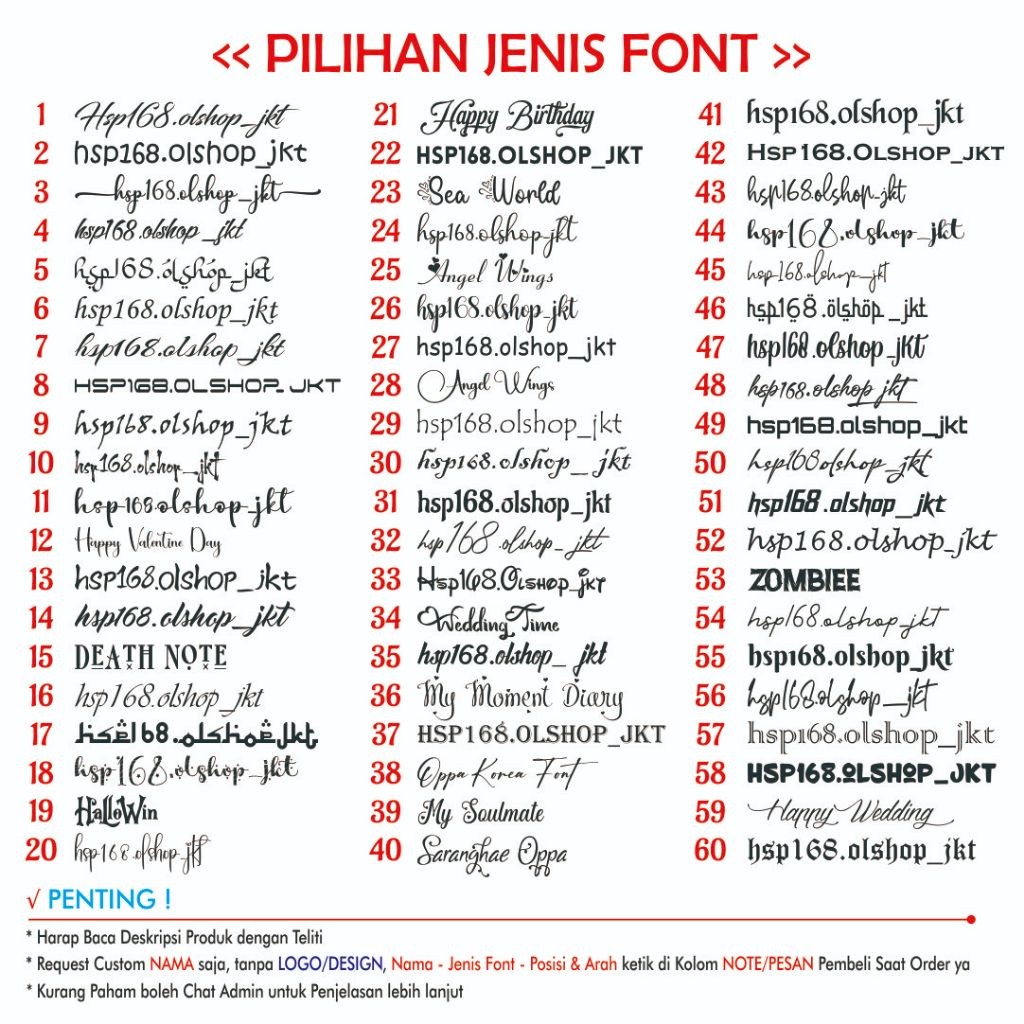 << PILIHAN JENIS FONT >>
1 Hsp168.olshop_jkt
2 hsp168.olshop_jkt
3 hsp168.olshop_jkt
4 hsp168.olshop_jkt
5 hsp168.olshop_jkt
6 hsp168.olshop_jkt
7 hsp168.olshop_jkt
8 HSP168.OLSHOP_JKT
9 hsp168.olshop_jkt
10 hsp168.olshop_jkt
11 hsp168.olshop_jkt
12 Happy Valentine Day
13 hsp168.olshop_jkt
14 hsp168.olshop_jkt
15 DEATH NOTE
16 hsp168.olshop_jkt
17 hsp168.olshop_jkt
18 hsp168.olshop_jkt
19 HalloWin
20 hsp168.olshop_jkt
21 Happy Birthday
22 HSP168.OLSHOP_JKT
23 Sea World
24 hsp168.olshop_jkt
25 Angel Wings
26 hsp168.olshop_jkt
27 hsp168.olshop_jkt
28 Angel Wings
29 hsp168.olshop_jkt
30 hsp168.olshop_jkt
31 hsp168.olshop_jkt
32 hsp168.olshop_jkt
33 Hsp168.Olshop_jkt
34 Wedding Time
35 hsp168.olshop_ jkt
36 My Moment Diary
37 HSP168.OLSHOP_JKT
38 Oppa Korea Font
39 My Soulmate
40 Saranghae Oppa
41 hsp168.olshop_jkt
42 HSP168.OLSHOP_JKT
43 hsp168.olshop_jkt
44 hsp168.olshop_jkt
45 hsp168.olshop_jkt
46 hsp168.olshop_jkt
47 hsp168.olshop_jkt
48 hsp168.olshop_jkt
49 hsp168.olshop_jkt
50 hsp168olshop_jkt
51 hsp168.olshop_jkt
52 hsp168.olshop_jkt
53 ZOMBIEE
54 hsp168.olshop_jkt
55 hsp168.olshop_jkt
56 hsp168.olshop_jkt
57 hsp168.olshop_jkt
58 HSP168.OLSHOP_JKT
59 Happy Wedding
60 hsp168.olshop_jkt
√ PENTING !
* Harap Baca Deskripsi Produk dengan Teliti
* Request Custom NAMA saja, tanpa LOGO/DESIGN, Nama - Jenis Font - Posisi & Arah ketik di Kolom NOTE/PESAN Pembeli Saat Order ya
* Kurang Paham boleh Chat Admin untuk Penjelasan lebih lanjut